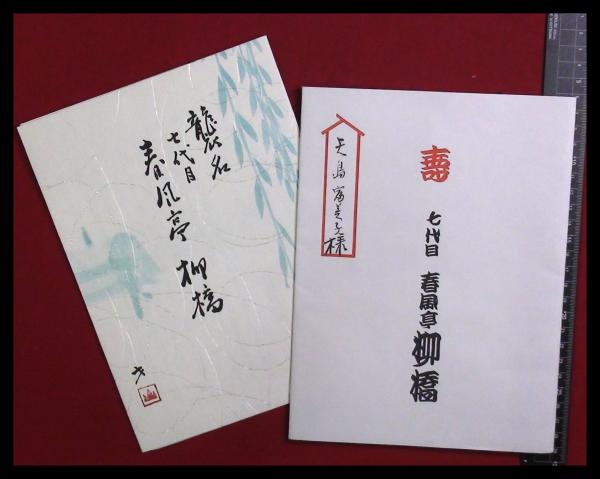 襲名
七代目
春風亭 柳橋
寿
七代目 春風亭 柳橋
矢島富美子様